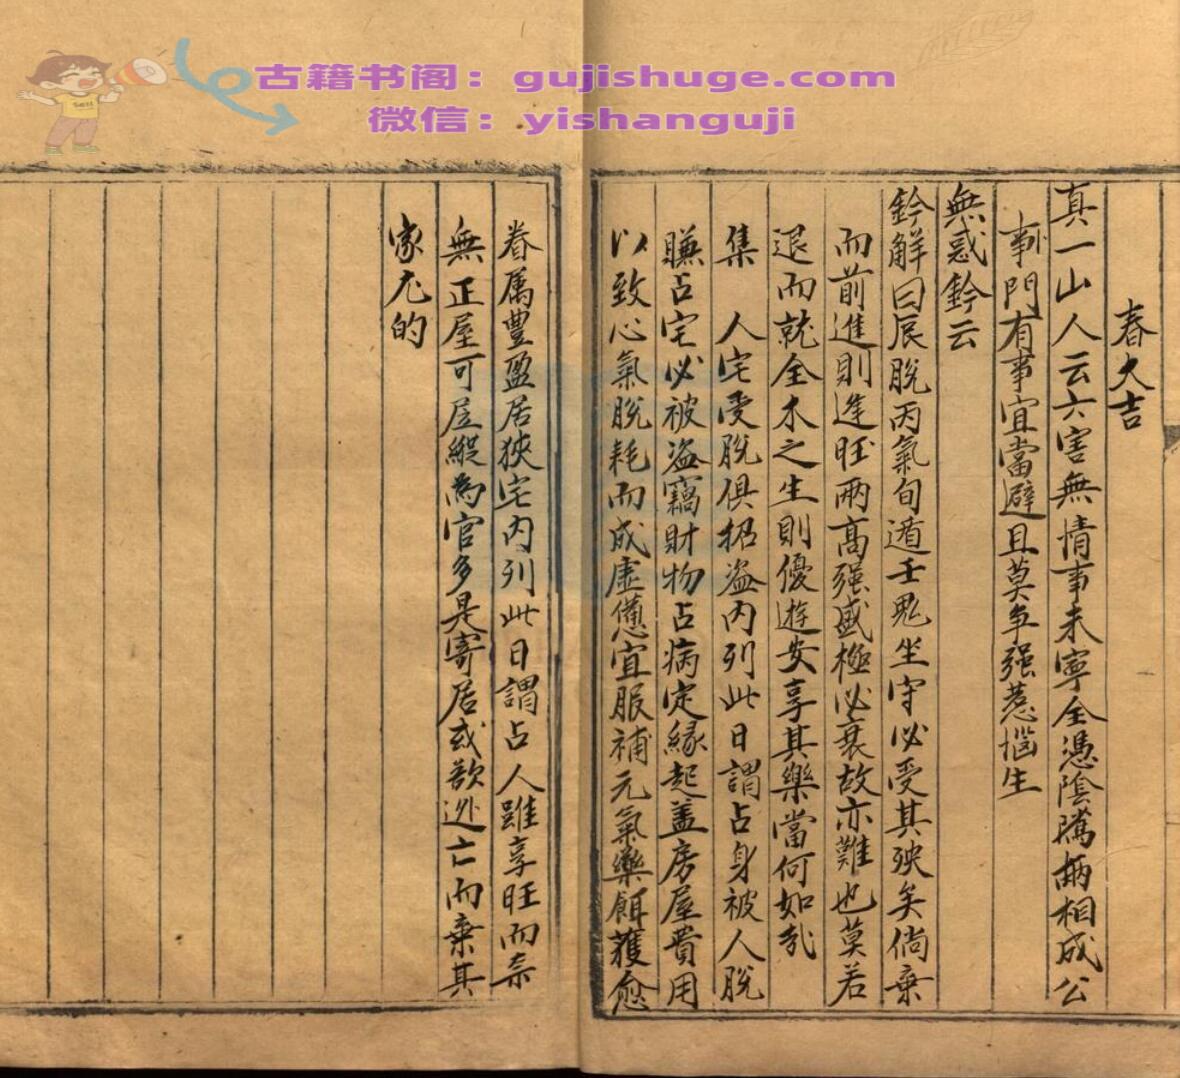 古籍书阁：gujishuge.com
微信：yishanguji
春大吉
真一山人云六害無情事未寧全憑陰隲兩相成公
事門有事宜當避且莫争强惹惱生
無惑鈐云
鈐解曰辰脫丙氣旬遁壬鬼坐守必受其殃矣倘棄
而前進則逢旺兩高强盛極必衰故亦難也莫若
退而就全木之生則優遊安享其樂當何如哉
集　人宅受脫俱招盗内列此日謂占身被人脫
賺占宅必被盗竊財物占病定緣起盖房屋費用
以致心氣脫耗而成虚憊宜服補元氣藥餌獲愈
眷属豐盈居狹宅内列此日謂占人雖享旺而奈
無正屋可居縱為官多是寄居或欲逃亡而棄其
家尤的